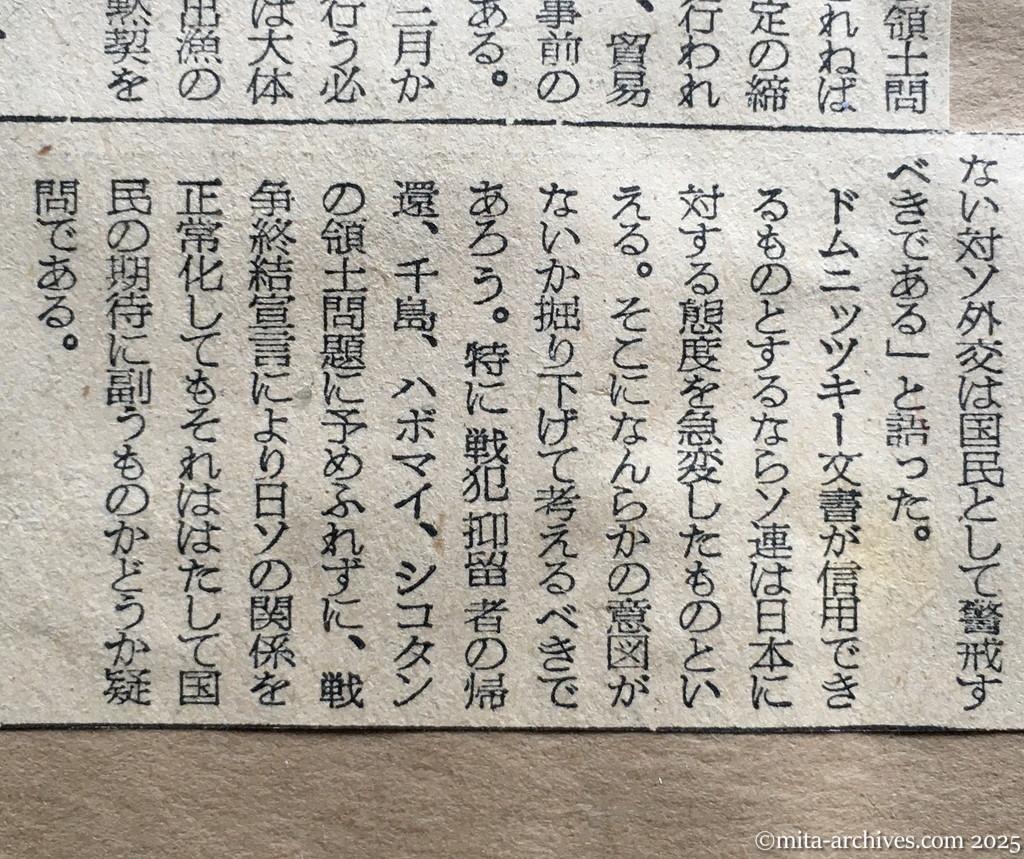 領土問
れねば
定の締
行われ
、貿易
事前の
ある。
二月か
行う必
は大体
出漁の
黙契を
ない対ソ外交は国民として警戒す
べきである」と語った。
ドムニッツキー文書が信用でき
るものとするならソ連は日本に
対する態度を急変したものとい
える。そこになんらかの意図が
ないか掘り下げて考えるべきで
あろう。特に戦犯抑留者の帰
還、千島、ハボマイ、シコタン
の領土問題に予めふれずに、戦
争終結宣言により日ソの関係を
正常化してもそれははたして国
民の期待に副うものかどうか疑
問である。
©mita-archives.com 2025